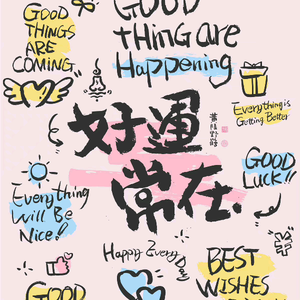 GOOD
THINGS
ARE
COMING
GOOD
tHING are
Happening
Everything is
Getting Better
好運
常在
GOOD
LUCK!!
Everything
Will Be
Nice!
Happy Every Day
BEST
WISHES
GOOD